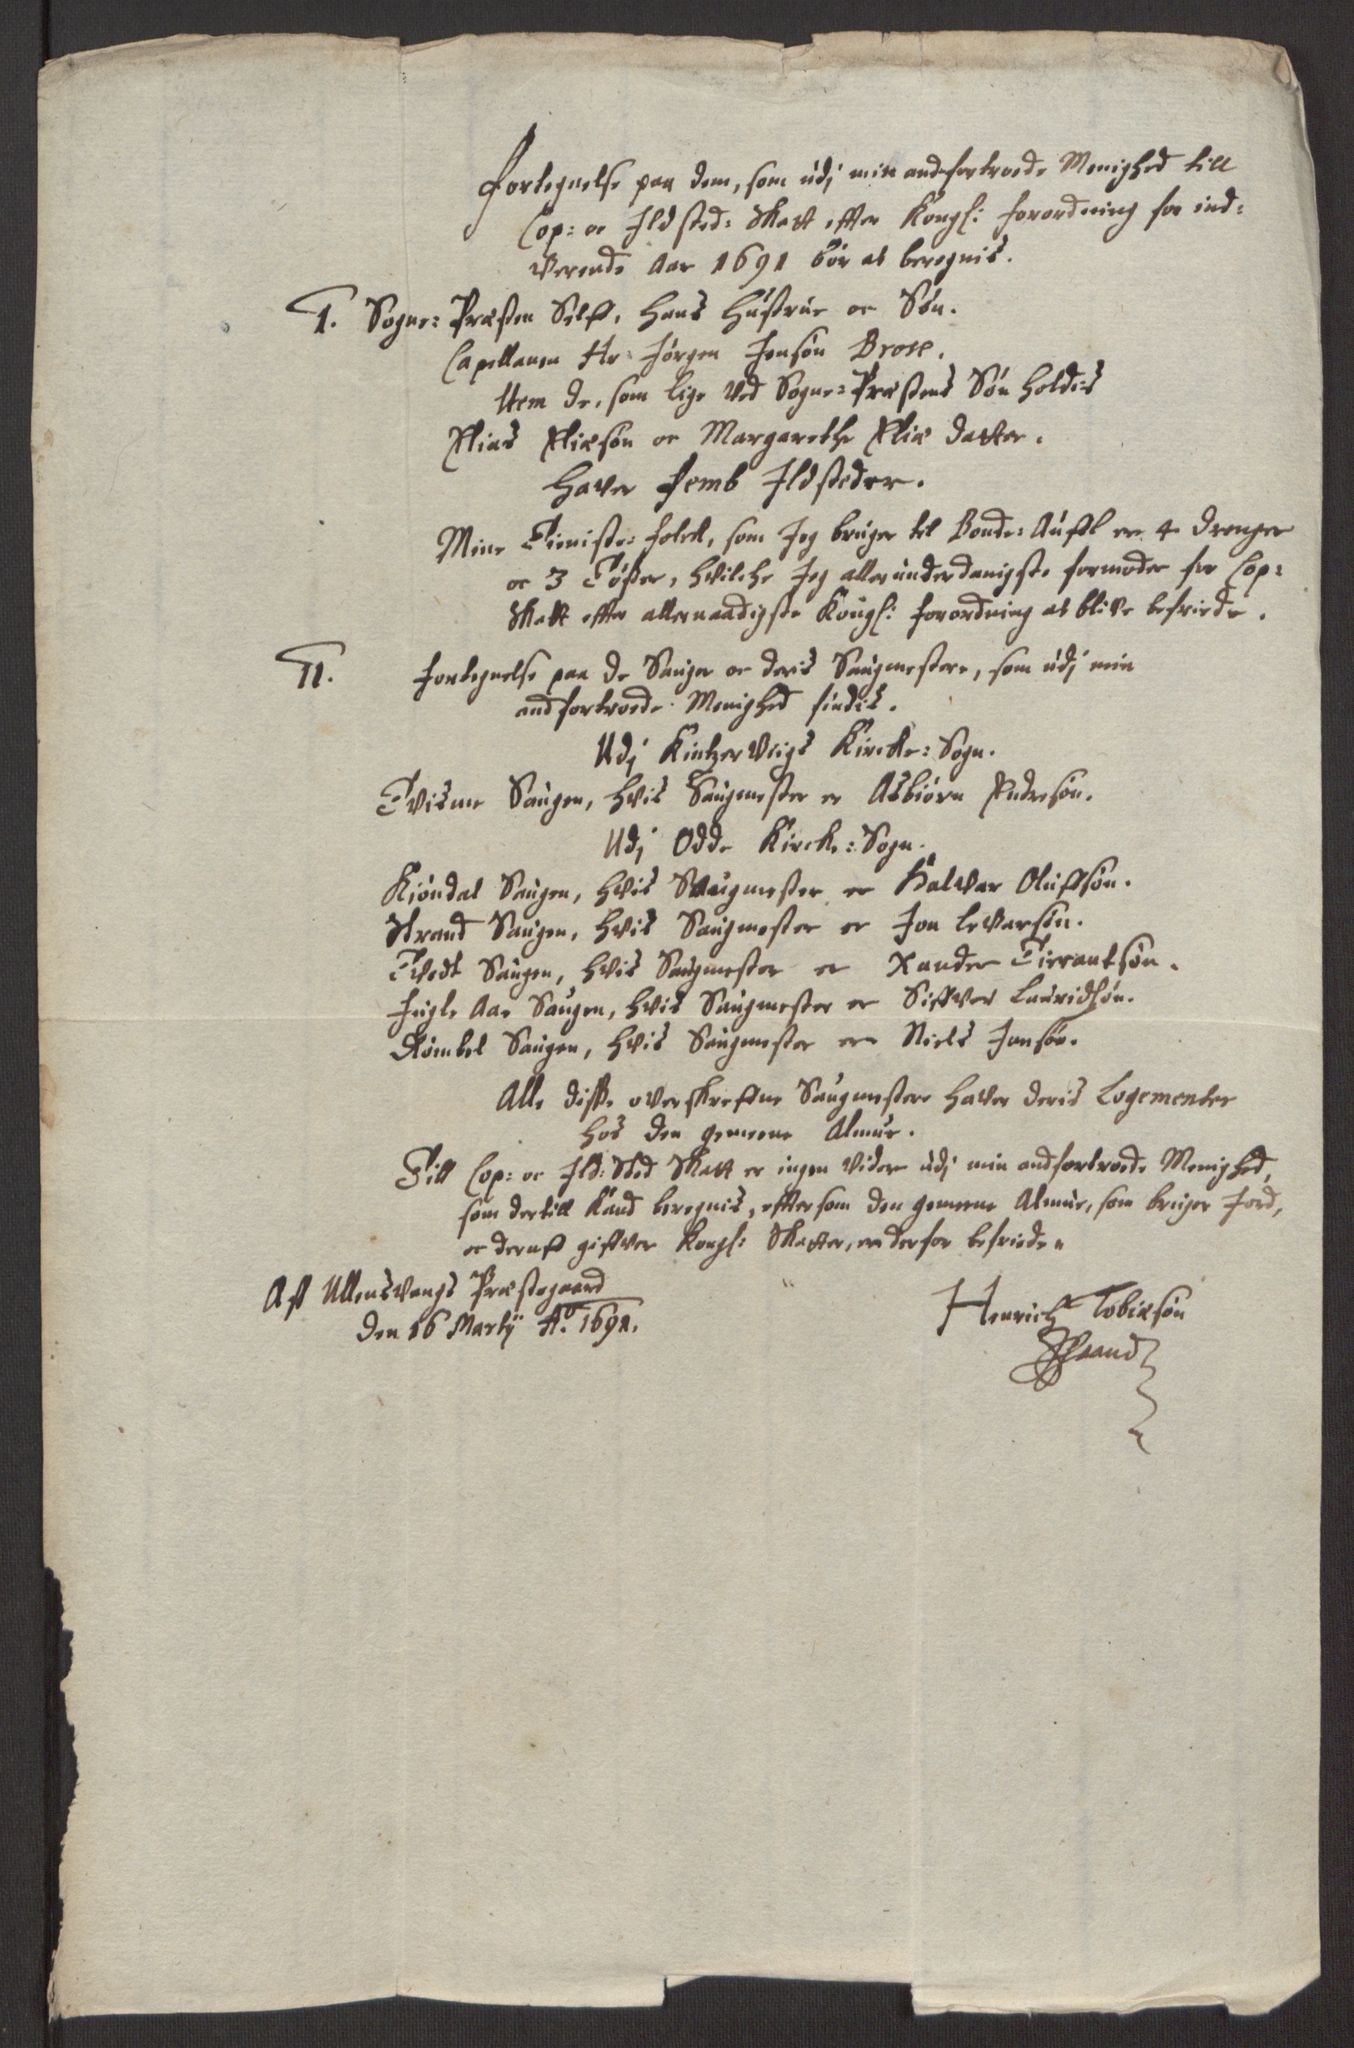 Fortegnelse paa dem, som udj min andfortroede Menighed till
Cop: oc Ildsted: Skatt effter Kongl: forordning for ind:
verende Aar 1691 bör at beregnis.
I. Sogne: Præsten Self, Hans Hustrue oc Sön.
Capellanen Hr: Jörgen Jensön Brose.
Item de, som lige ved Sogne: Præstens Sön holdis
Elias Eliæsön oc Margarethe Eliæ datter.
Haver femb Ildsteder.
Mine Tieniste: folck, som Jeg bruger til Bonde: Aufl er 4 drenger
oc 3 Tößer, hvilche Jeg allerunderdanigste formoder for Cop:
Skatt effter allernaadigste Kongl: forordning at blive befriede.
II. Fortegnelse paa de Sauger oc deris Saugmestere, som udj min
andfortroede Menighed findis.
Udj Kintzervigs Kircke: Sogn.
Tvisme Saugen, hvis Saugmester er Asbiörn Endresön.
Udj Odde Kircke: Sogn.
Kiöndal Saugen, hvis Saugmester er Halvar Olufsön.
Strand Saugen, hvis Saugmester er Jon levarsön.
Tvedt Saugen, hvis Saugmester er Xander Tierantsön.
Fugle Aae Saugen, hvis Saugmester er Siffver Lauridsön.
Skömbel Saugen, hvis Saugmester er Niels Jonsön.
Alle diße overskrefne Saugmestere haver deris Logementer
hos den gemeene Almue.
Till Cop: oc Ild: Sted Skatt er ingen videre udj min andfortroede Menighed,
som dertill kand beregnis, effter som den gemeene Almue, som bruger Jord,
oc deraf gifver Kongl: Skatter, er derfor befrieden
Aff Ullensvangs Præstegaard
den 16 Martij Aᵒ. 1691.
Henrich Tobiæsön